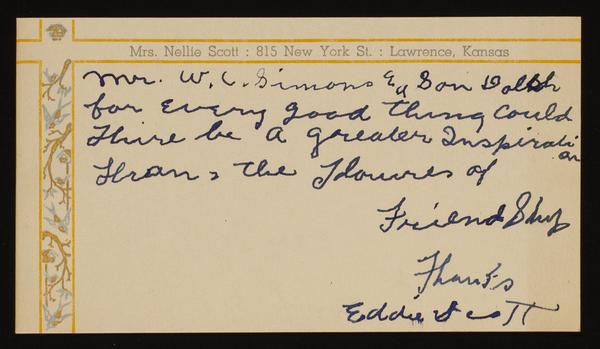 Mrs. Nellie Scott : 815 New York St. : Lawrence, Kansas
Mr. W. C. Simons & Son Dolph
for Every good thing Could
Thire be A greater Inspiration
Than the Flowres of
FriendShip
Thanks
Eddie Scott